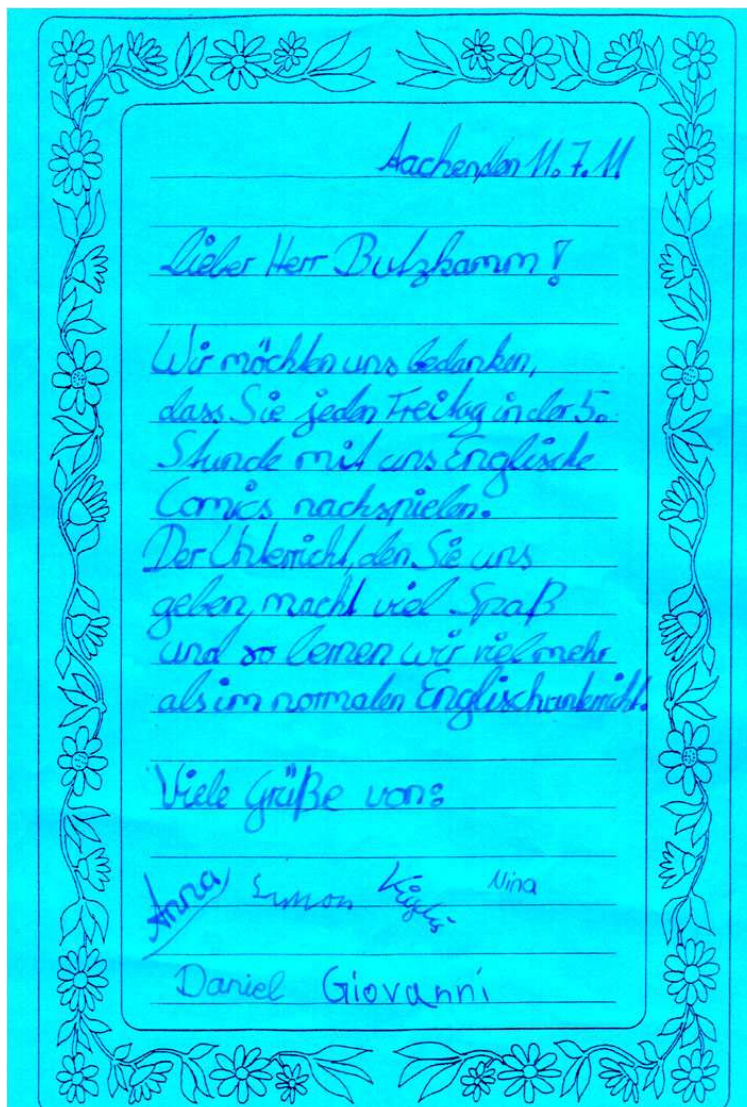 Aachen, den 11.7.11
Lieber Herr Butzkamm!
Wir möchten uns bedanken,
dass Sie jeden Freitag in der 5.
Stunde mit uns Englische
Comics nachspielen.
Der Unterricht, den Sie uns
geben, macht viel Spaß
und so lernen wir viel mehr
als im normalen Englischunterricht.
Viele Grüße von:
Anna Simon Nina
Daniel Giovanni